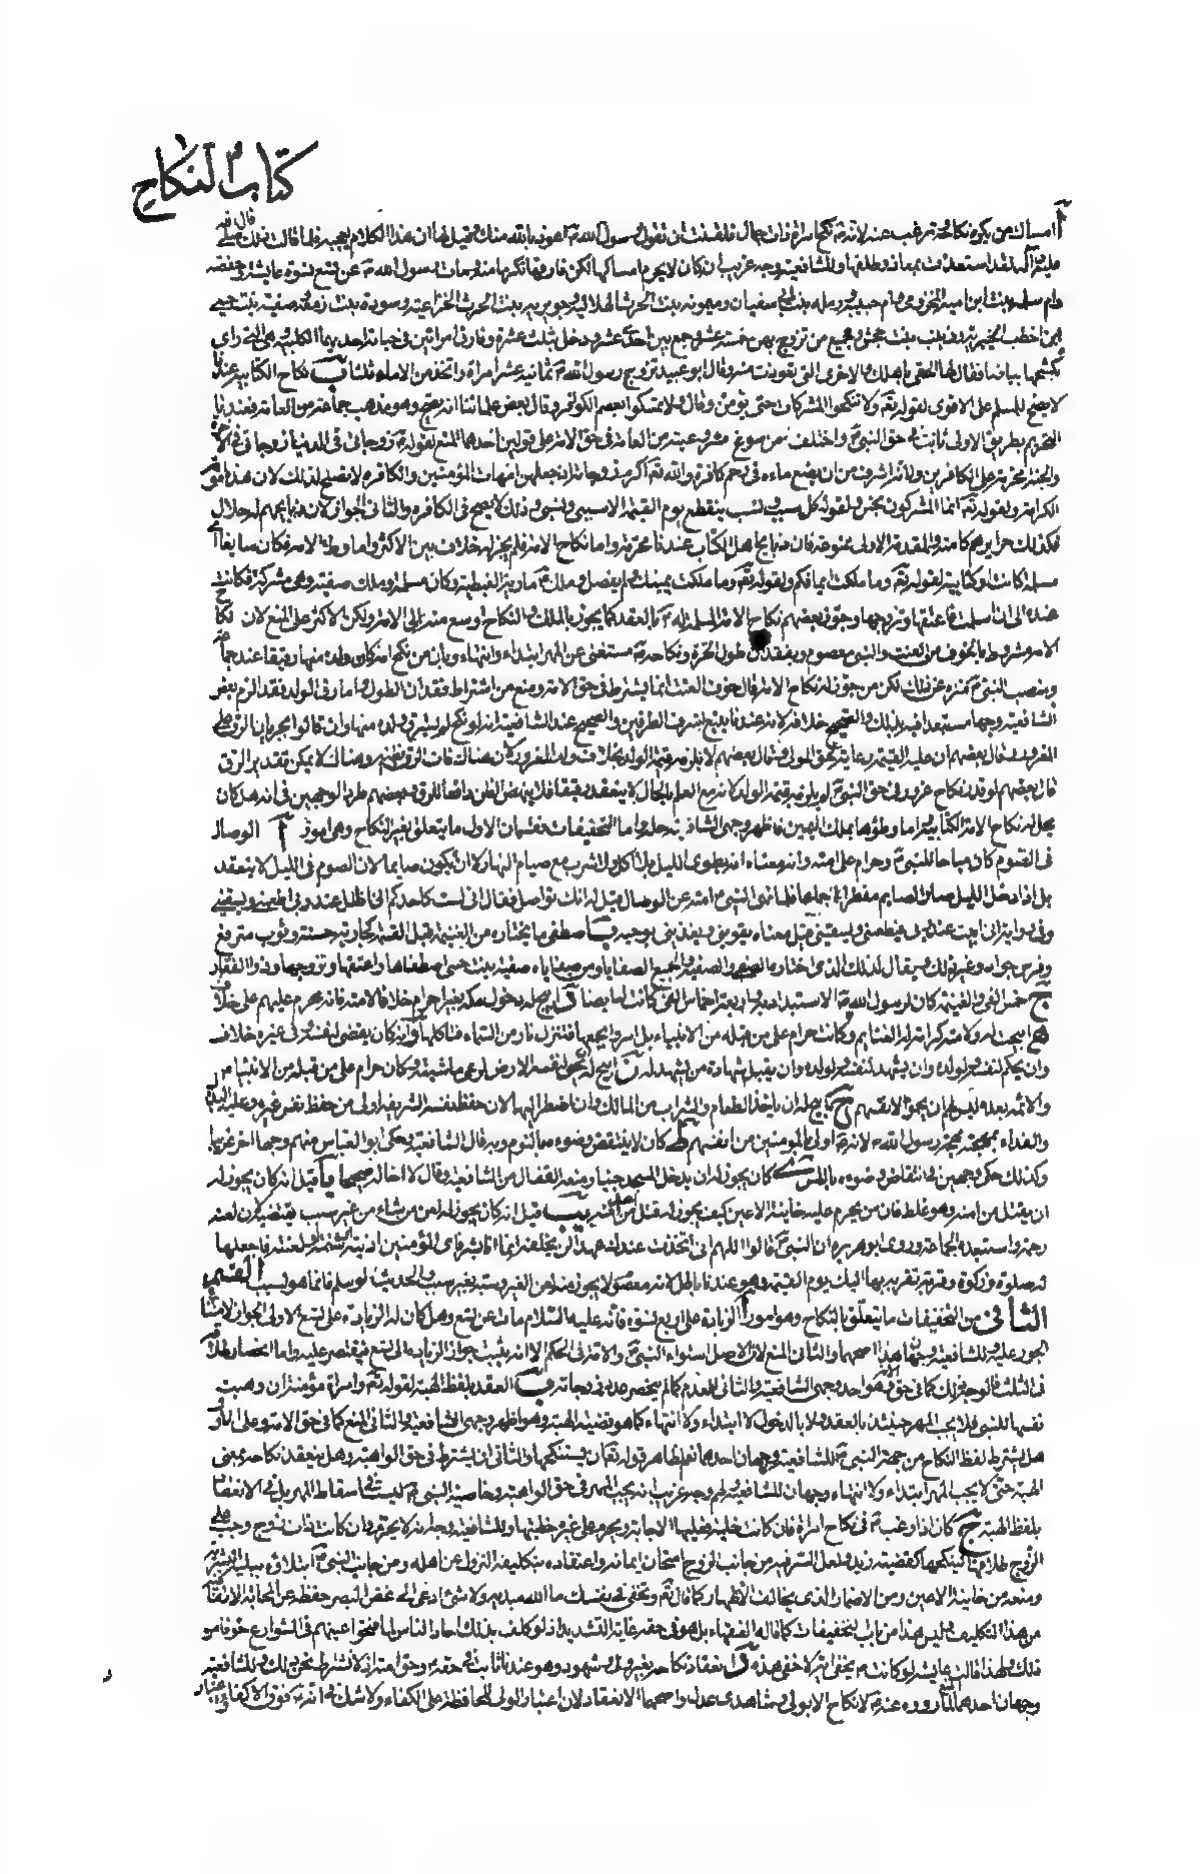 كتاب النكاح
آ امساك من يكره نكاحه ترغب عنه لانه ع نكح امراة ذات جمال فلقنت ان تقول لرسول الله ع اعوذ بالله منك وقيل لها ان هذا الكلام يعجبه فلما قالت ذلك قال
لقد استعذت بمعاذ وطلقها وللشافعية وجه غريب انه كان لا يحرم امساكها لكن فارقها تكرما منه ومات رسول الله ع عن تسع نسوة عايشة وحفصة
وام سلمة بنت ابي امية المخزومي وام حبيبة رملة بنت ابي سفيان وميمونة بنت الحرث الهلالية وجويرية بنت الحرث الخزاعية وسودة بنت زمعة وصفية بنت حيي
ابن اخطب الخيبرية وزينب بنت جحش وجميع من تزوج بهن خمس عشرة وجمع بين احدى عشرة ودخل بثلث عشرة وفارق امراتين في حياته احديهما الكلبية وهي التي راى
بكشحها بياضا فقال لها الحقي باهلك والاخرى التي تعوذت منه وقال ابو عبيد تزوج رسول الله ع ثمانية عشر امراة واتخذ من الاماء ثلثا ب نكاح الكتابية عندنا
لا يصح للمسلم على الاقوى لقوله تع ولا تنكحوا المشركات حتى يؤمن وقال ولا تمسكوا بعصم الكوافر وقال بعض علمائنا انه يصح وهو مذهب جماعة من العامة فعندنا
التحريم بطريق الاولى ثابت في حق النبي ع واختلف من سوغ من العامة في حق الامة على قولين احدهما المنع لقوله ع زوجاتي في الدنيا زوجاتي في الاخرة
والجنة محرمة على الكافرين ولانه اشرف من ان يضع ماءه في رحم كافرة والله تع اكرم زوجاته اذ جعلهن امهات المؤمنين والكافرة لا تصلح لذلك لان هذه امومة
الكرامة ولقوله تع انما المشركون نجس ولقوله كل سبب ونسب ينقطع يوم القيمة الا سببي ونسبي وذلك لا يصح في الكافرة والثاني الجواز لان ذبايحهم له حلال
فكذلك حرايرهم كامته والمقدمة الاولى ممنوعة فان ذبايح اهل الكتاب عندنا محرمة واما نكاح الامة فلم يجز له خلاف بين الاكثر واما وطى الامة فكان سايغا
مسلمة كانت او كتابية لقوله تع وما ملكت ايمانكم ولقوله تع وما ملكت يمينك ولم يفصل وملك ع مارية القبطية وكان مسلمة وملك صفية وهي مشركة فكانت
عنده الى ان اسلمت فاعتقها وتزوجها وجوز بعضهم نكاح الامة المسلمة له ع بالعقد كما يجوز بالملك والنكاح اوسع منه الى الامة ولكن الاكثر على المنع لان نكاح
الامة مشروط بالخوف من العنت والنبي معصوم وبفقدان طول الحرة ونكاحه ع مستغنى عن المهر ابتداء وانتهاء وبان من نكح امة كان ولده منها رقيقا عند جماعة
ومنصب النبي ع منزه عن ذلك لكن من جوز له نكاح الامة قال خوف العنت انما يشترط في حق الامة ومنع من اشتراط فقدان الطول واما رق الولد فقد الزم بعض
الشافعية وجها مستبعدا فيه بذلك والصحيح خلافه لانه عندنا يتبع اشرف الطرفين والصحيح عند الشافعية انه لو نكح لم يسترق ولده منها وان قالوا بجريان الرق على
قال بعضهم لو قدر نكاح غرور في حق النبي ع لم يلزمه قيمة الولد لانه مع العلم بالحال لا ينعقد رقيقا فلا ينهض الظن دافعا للرق وبعضهم طرد الوجهين في انه هل كان
يحل له نكاح الامة الكتابية واما وطؤها بملك اليمين فاظهر وجهي الشافعية حله واما التخفيفات فقسمان الاول ما يتعلق بغير النكاح وهي امور آ الوصال
في الصوم كان مباحا للنبي ع وحرام على امته وانه معناه انه يطوى الليل بلا اكل ولا شرب مع صيام النهار لا ان يكون صايما لان الصوم في الليل لا ينعقد
بل اذا دخل الليل صار الصايم مفطرا اجماعا فلما نهى النبي ع امته عن الوصال قيل له انك تواصل فقال اني لست كاحدكم اني اظل عند ربي يطعمني ويسقيني
وفي رواية اني ابيت عند ربي فيطعمني ويسقيني قيل معناه يقويني ويغذيني بوحيه ب اصطفى ما يختاره من الغنيمة قبل القسمة كجارية حسنة وثوب مترفع
وفرس جواد وغير ذلك ويقال لذلك الذي اختاره الصفي والصفية والجمع الصفايا ومن صفاياه صفية بنت حيي اصطفاها واعتقها وتزوجها وذو الفقار
ج خمس الفي والغنيمة كان لرسول الله ع الاستبداد به واربعة اخماس الفي كانت له ايضا د ابيح له دخول مكة بغير احرام خلافا لامته فانه محرم عليهم على خلاف
ه ابيحت له ولامته كرامة له الغنايم وكانت حرام على من قبله من الانبياء بل امروا بجمعها فتنزل نار من السماء فتاكلها و انه كان يقضي لنفسه وفي غيره خلاف
وان يحكم لنفسه ولولده وان يشهد لنفسه ولولده وان يقبل شهادة من يشهد له ز ابيح له ان يحمى لنفسه الارض لرعي ماشيته وكان حرام على من قبله من الانبياء ع
والائمة بعده ليس لهم ان يحموا لانفسهم ح ابيح له ان ياخذ الطعام والشراب من المالك وان اضطر اليهما لان حفظ نفسه الشريفة اولى من حفظ نفس غيره وعليه البذل
والفداء بمهجته مهجة رسول الله ع لانه ع اولى بالمؤمنين من انفسهم ط كان لا ينتقض وضوءه بالنوم وبه قال الشافعية وحكى ابو العباس منهم وجها اخر غريبا
وكذلك حكى وجهين في انتقاض وضوءه باللمس ي كان يجوز له ان يدخل المسجد جنبا ومنعه القفال من الشافعية وقال لا اخاله صحيحا يا قيل انه كان يجوز له
ان يقتل من امنه وهو غلط فان من يحرم عليه خاينة الاعين كيف يجوز له قتل من امنه يب قيل انه كان يجوز له لعن من شاء من غير سبب يقتضيه لان لعنه
رحمة واستبعده الجماعة وروى ابو هريرة ان النبي ع قال اللهم اني اتخذت عندك عهدا لن تخلفه انما انا بشر فاي المؤمنين اذيته شتمته او لعنته فاجعلها
له صلوة وزكوة وقربة تقربه بها اليك يوم القيمة وهو عندنا باطل لانه معصوم لا يجوز منه لعن الغير وسبه بغير سبب والحديث لو سلم فانما هو لسبب القسم
الثاني من التخفيفات ما يتعلق بالنكاح وهو امور آ الزيادة على اربع نسوة فانه عليه السلام مات عن تسع وهل كان له الزيادة على تسع الاولى الجواز لامتناع
الجور عليه وللشافعية وجهان هذا اصحهما والثاني المنع لان الاصل استواء النبي ع والامة في الحكم الا انه يثبت جواز الزيادة الى تسع فيقتصر عليه واما انحصار طلاقه
في الثلث فالوجه ذلك كما في حق الامة وهو احد وجهي الشافعية والثاني العدم كما لم ينحصر عدد زوجاته ب العقد بلفظ الهبة لقوله تع وامراة مؤمنة ان وهبت
نفسها للنبي فلا يجب المهر حينئذ بالعقد ولا بالدخول لا ابتداء ولا انتهاء كما هو قضية الهبة وهو اظهر وجهي الشافعية والثاني المنع كما في حق الامة وعلى الاول
هل يشترط لفظ النكاح من جهة النبي ع للشافعية وجهان احدهما نعم لظاهر قوله تع ان يستنكحها والثاني لا يشترط في حق الواهبة وهل ينعقد نكاحه بمعنى
الهبة حتى لا يجب المهر ابتداء ولا انتهاء وجهان للشافعية ولهم وجه غريب انه يجب المهر في حق الواهبة وخاصية النبي ع ليست في اسقاط المهر بل في الانعقاد
بلفظ الهبة ج كان اذا رغب ع في نكاح امراة فان كانت خلية فعليها الاجابة ويحرم على غيره خطبتها وللشافعية وجه انه لا يحرم وان كانت ذات زوج وجب على
الزوج طلاقها لينكحها كقضية زيد ولعل السر فيه من جانب الزوج امتحان ايمانه واعتقاده بتكليفه النزول عن اهله ومن جانب النبي ع ابتلاؤه ببلية البشرية
ومنعه من خاينة الاعين ومن الاضمار الذي يخالف الاظهار كما قال تع وتخفي في نفسك ما الله مبديه ولا شئ ادعى الى غض البصر وحفظه عن لمحاته الاتفاقية
من هذا التكليف وليس هذا من باب التخفيفات كما قاله الفقهاء بل هو في حقه غاية التشديد اذ لو كلف بذلك احاد الناس لما فتحوا اعينهم في الشوارع خوفا من
ذلك ولهذا قالت عايشة لو كانت ع يخفي اية لاخفى هذه د انعقاد نكاحه بغير ولي وشهود وهو عندنا ثابت في حقه ع وحق امته اذ لا نشترط نحن ذلك وللشافعية
وجهان احدهما المنع لما روى عنه ع لا نكاح الا بولي وشاهدي عدل واصحهما الانعقاد لان اعتبار الولي للمحافظة على الكفاءة ولا شك في انه ع فوق الاكفاء